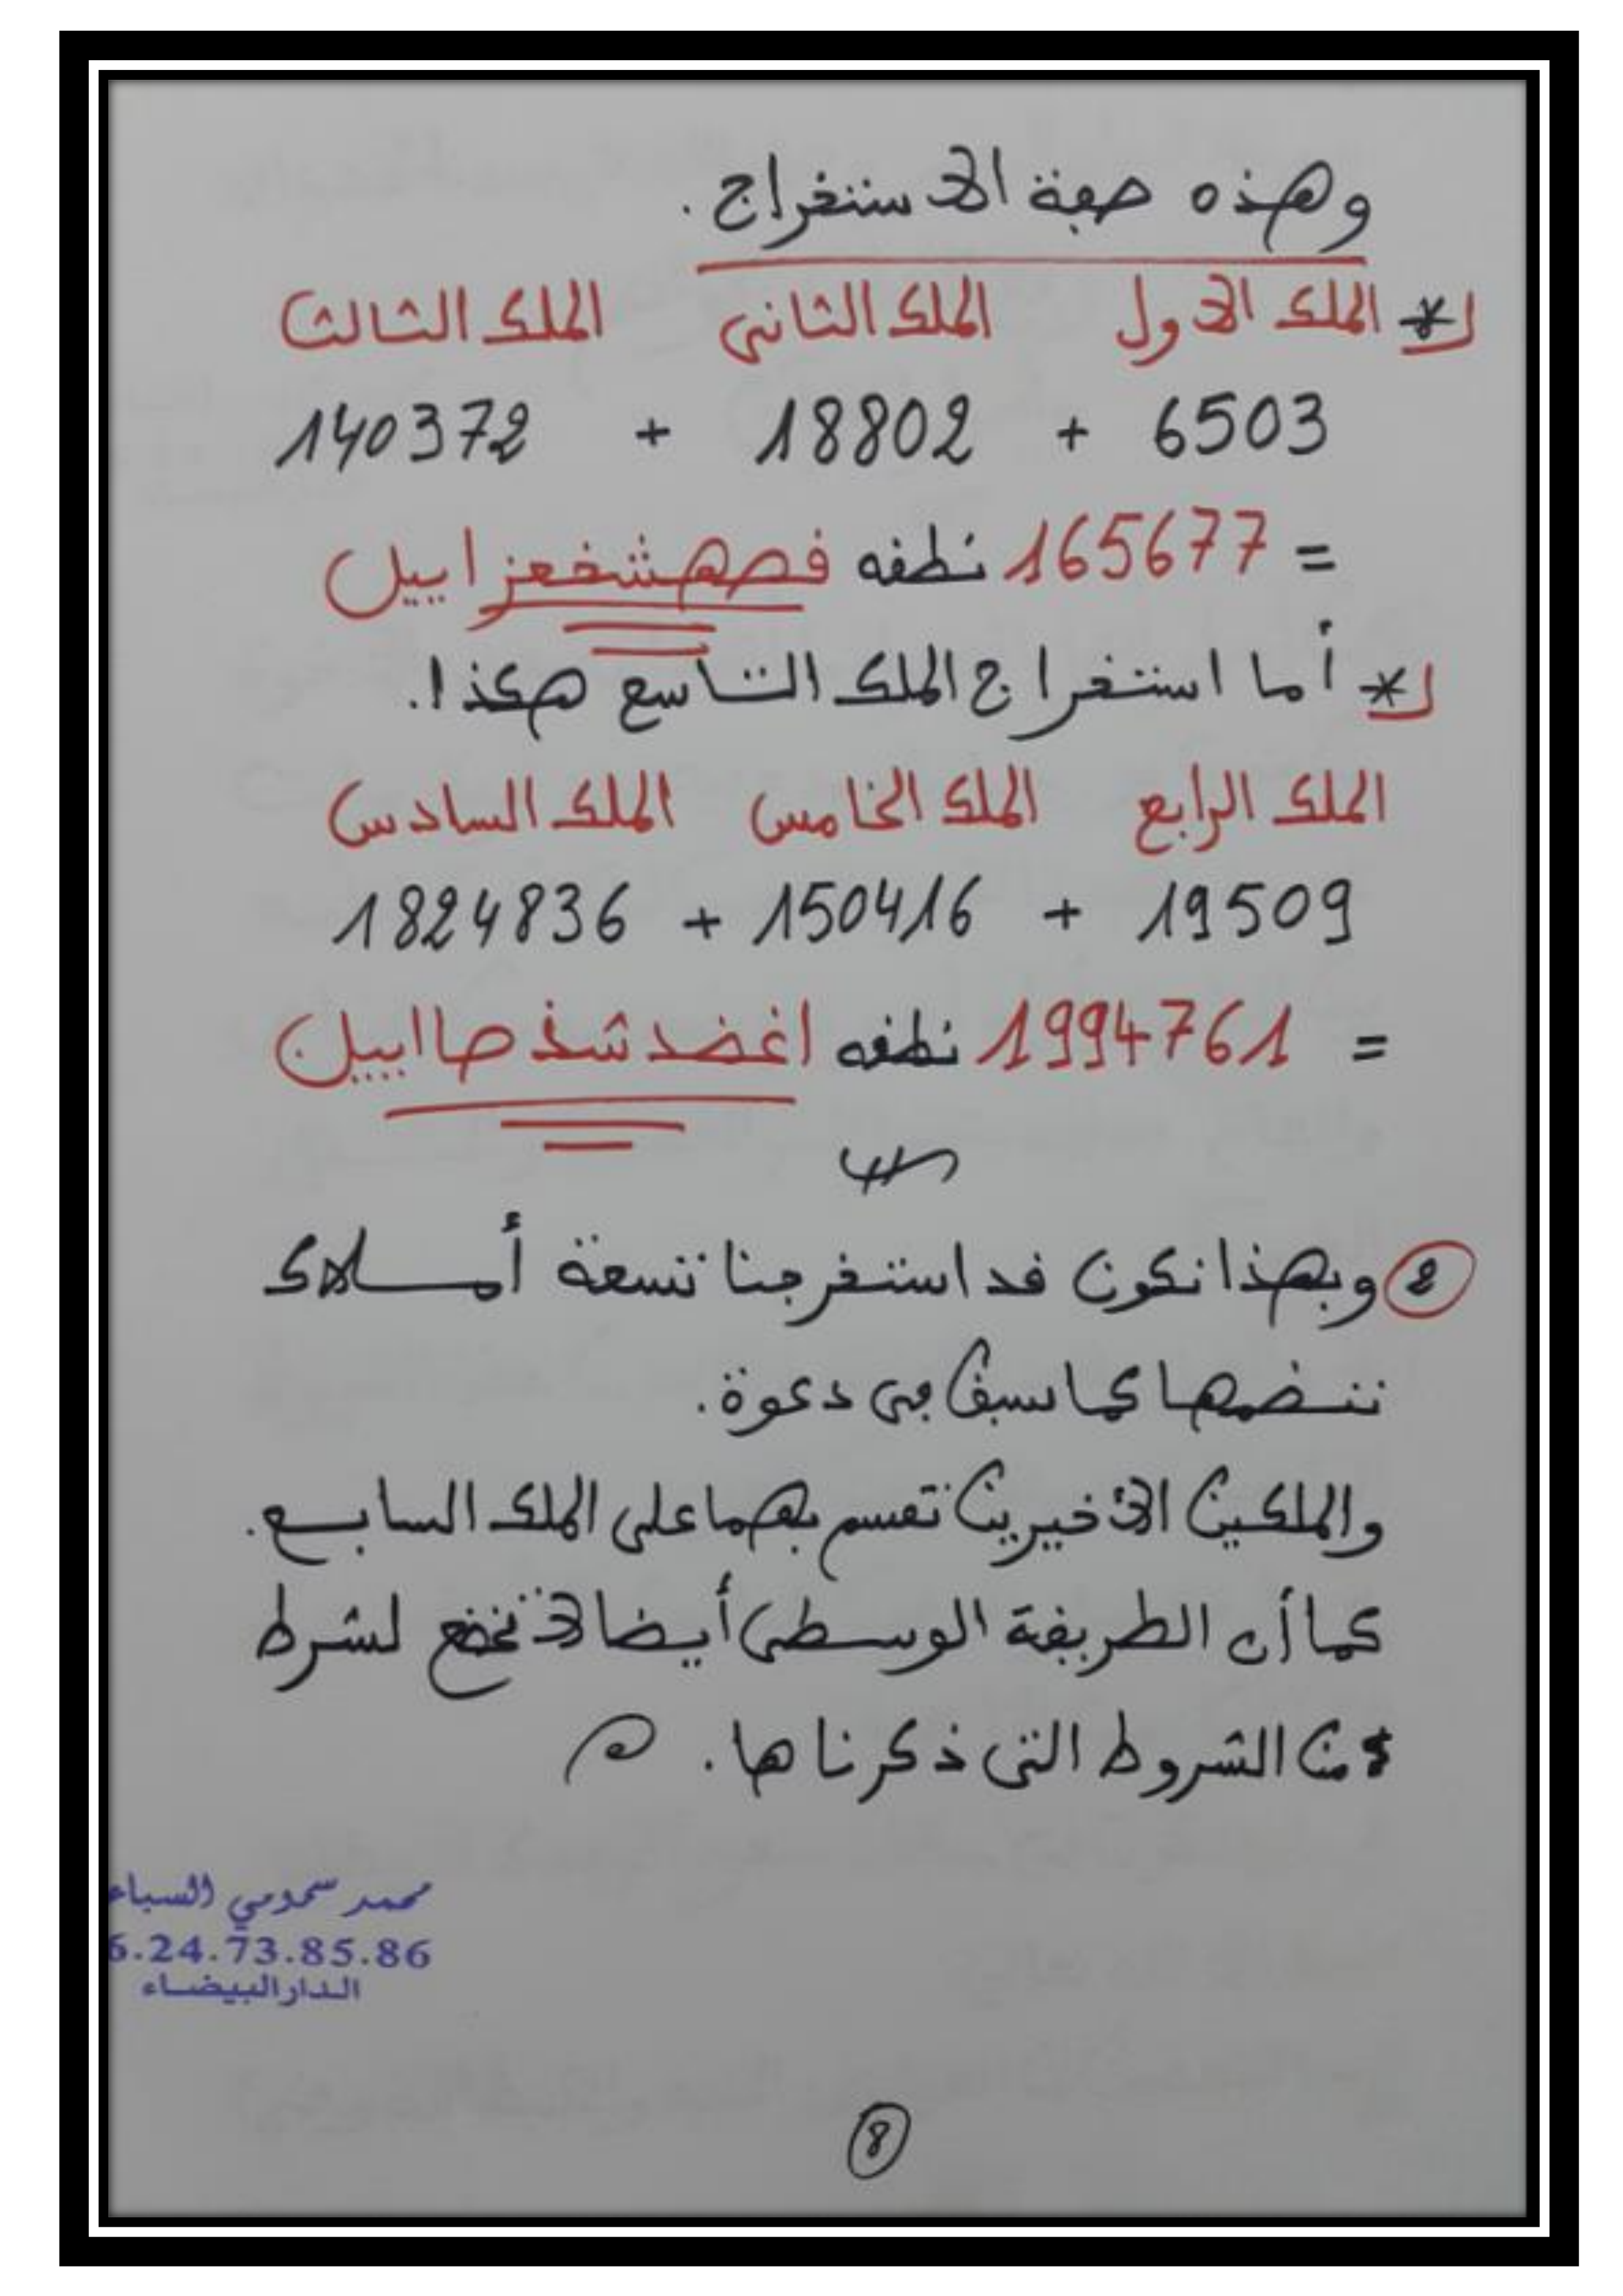 وهذه صفة الاستخراج.
* الملك الاول الملك الثاني الملك الثالث
6503 + 18802 + 140372
= 165677 نطقه قصهشخعزاييل
* أما استخراج الملك التاسع هكذا.
الملك الرابع الملك الخامس الملك السادس
19509 + 150416 + 1824836
= 1994761 نطقه اغضدشذصااييل
② وبهذا نكون قد استخرجنا تسعة أملاك
ننضمها كما سبق في دعوة.
والملكين الأخيرين تقسم بهما على الملك السابع.
كما أن الطريقة الوسطى أيضا لا تخضع لشرط
من الشروط التي ذكرناها.
محمد سحومي السباع
6.24.73.85.86
الدار البيضاء
8